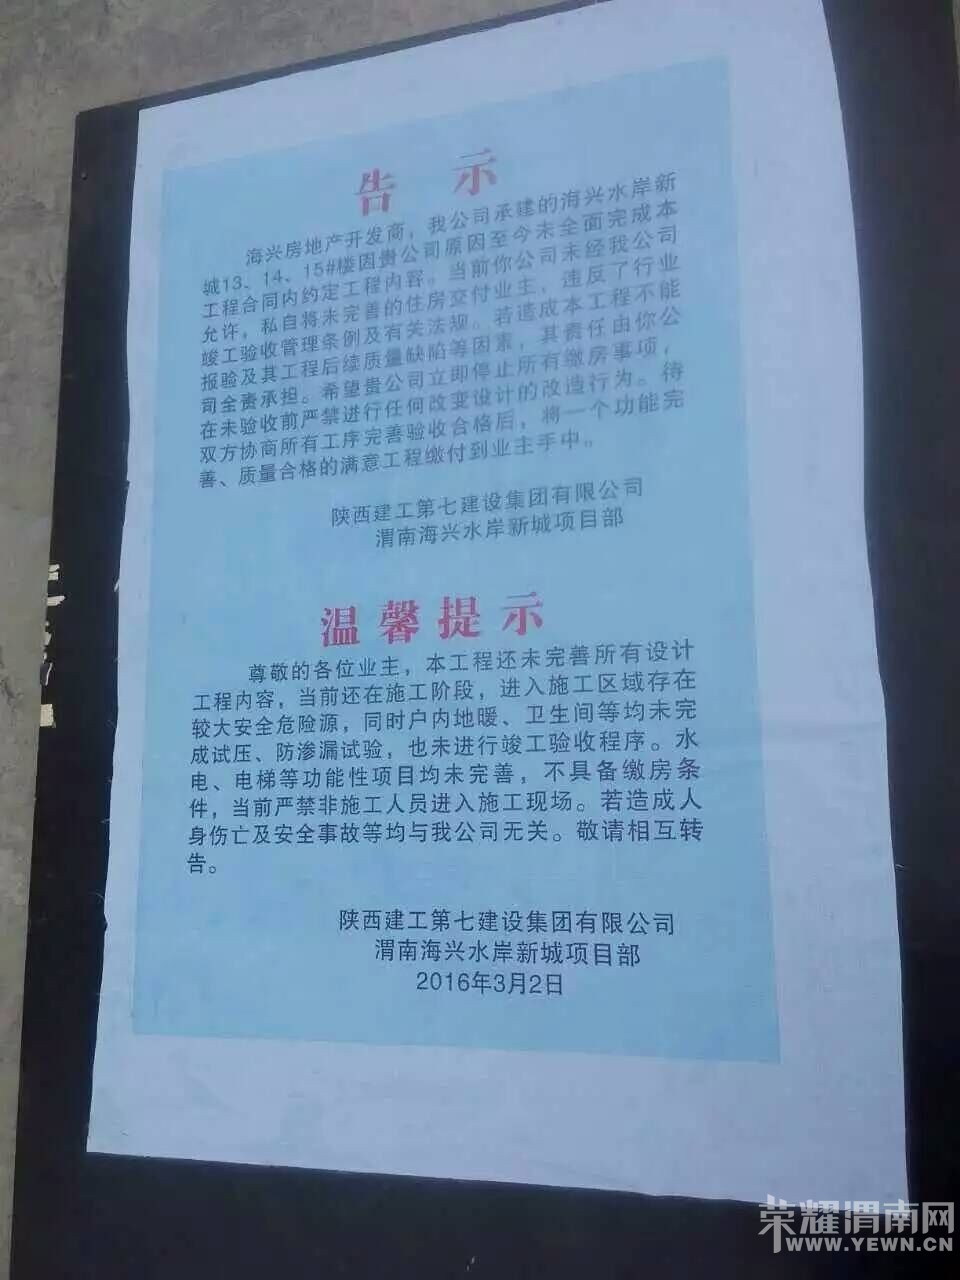 告 示
海兴房地产开发商，我公司承建的海兴水岸新
城13、14、15#楼因贵公司原因至今未全面完成本
工程合同内约定工程内容。当前你公司未经我公司
允许，私自将未完善的住房交付业主，违反了行业
竣工验收管理条例及有关法规。若造成本工程不能
报验及其工程后续质量缺陷等因素，其责任由你公
司全责承担。希望贵公司立即停止所有缴房事项，
在未验收前严禁进行任何改变设计的改造行为。待
双方协商所有工序完善验收合格后，将一个功能完
善、质量合格的满意工程缴付到业主手中。
陕西建工第七建设集团有限公司
渭南海兴水岸新城项目部
温馨提示
尊敬的各位业主，本工程还未完善所有设计
工程内容，当前还在施工阶段，进入施工区域存在
较大安全危险源，同时户内地暖、卫生间等均未完
成试压、防渗漏试验，也未进行竣工验收程序。水
电、电梯等功能性项目均未完善，不具备缴房条
件，当前严禁非施工人员进入施工现场。若造成人
身伤亡及安全事故等均与我公司无关。敬请相互转
告。
陕西建工第七建设集团有限公司
渭南海兴水岸新城项目部
2016年3月2日
荣耀渭南网
WWW.YEWN.CN